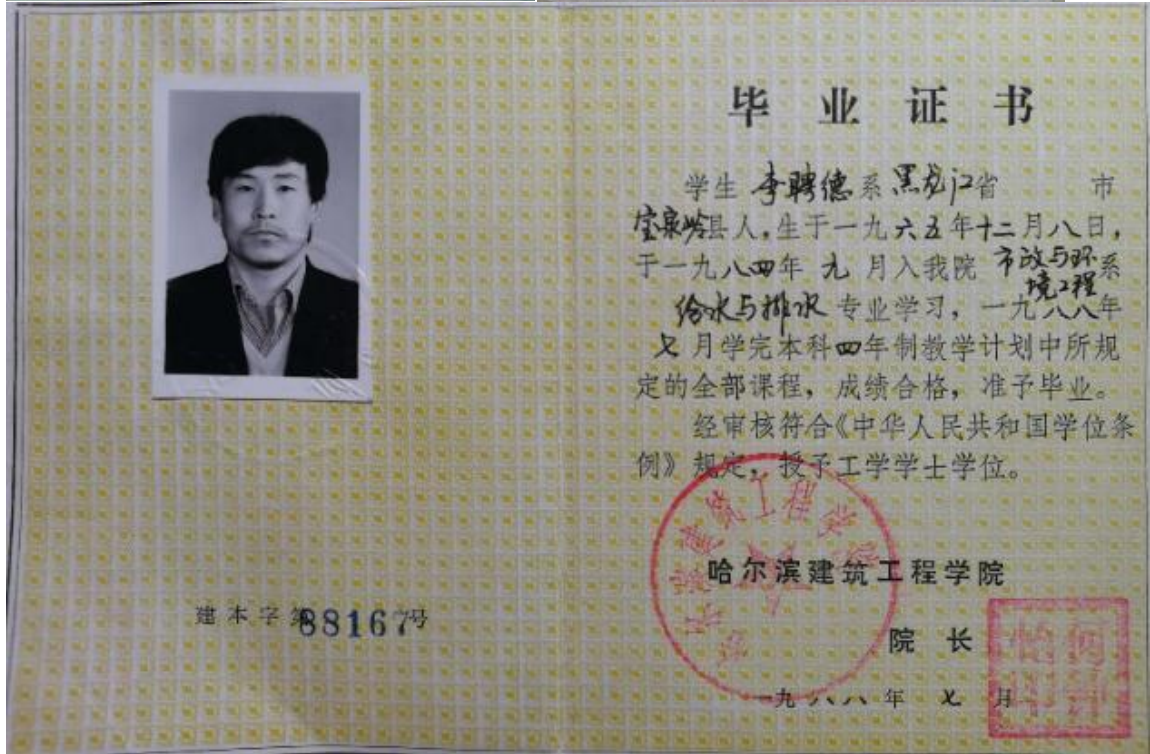 毕业证书
学生 李聘德 系 黑龙江省 市
宝泉岭县人,生于一九六五年十二月八日,
于一九八四年 九 月入我院 市政与环境工程系
给水与排水 专业学习,一九八八年
七月学完本科四年制教学计划中所规
定的全部课程,成绩合格,准予毕业。
经审核符合《中华人民共和国学位条
例》规定,授予工学学士学位。
哈尔滨建筑工程学院
哈尔滨建筑工程学院
院 长
一九八八年 七 月
建本字第88167号